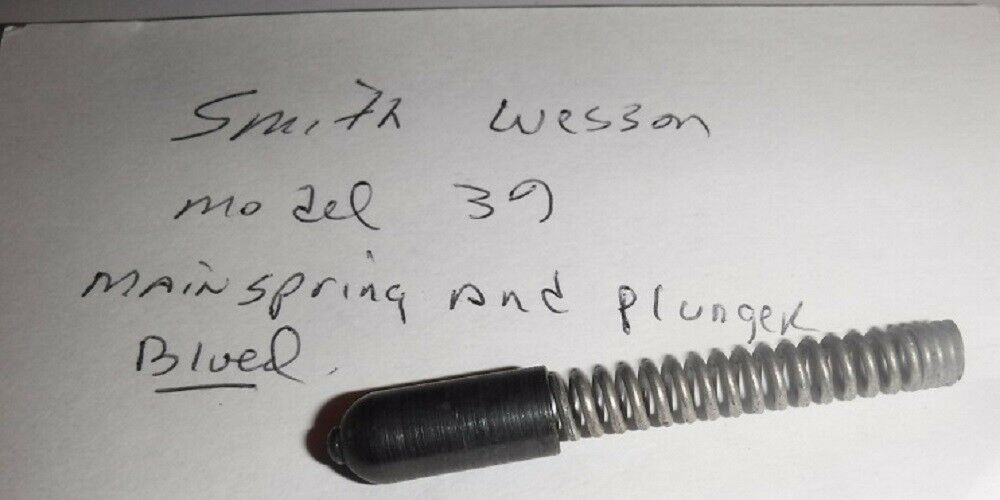 Smith Wesson
model 39
MAINspring and plunger
Blued.